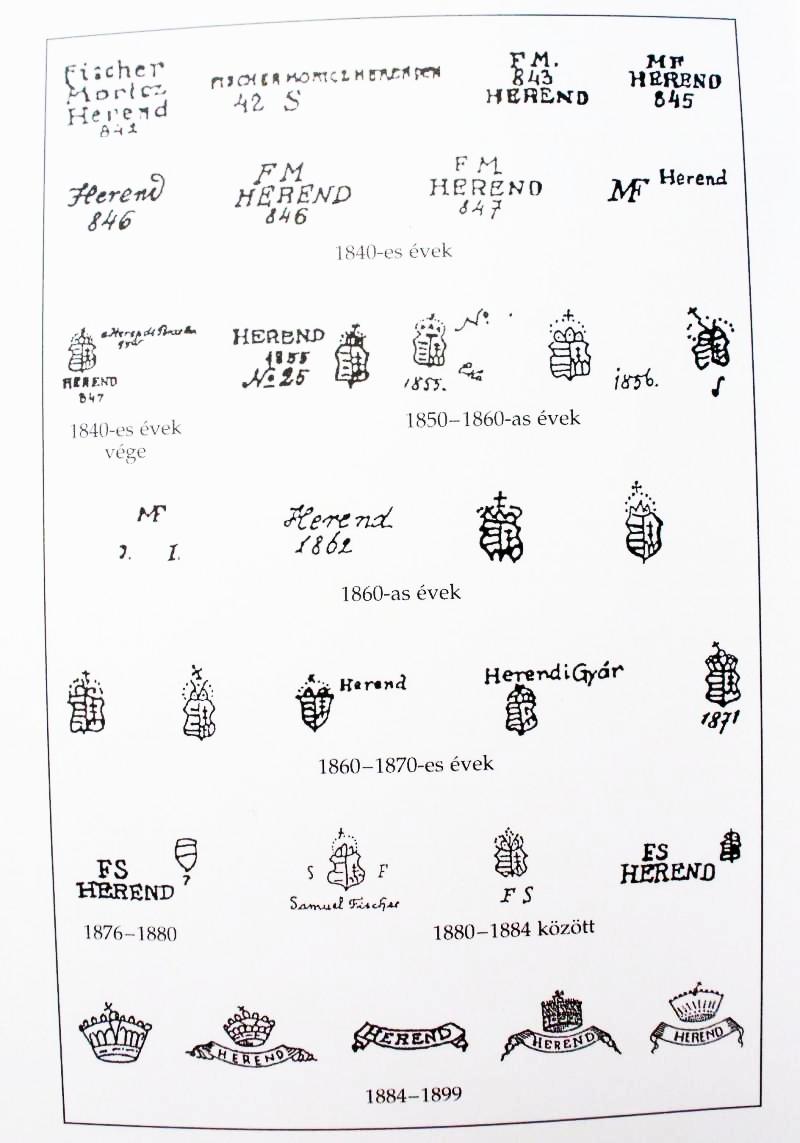 Fischer
Moricz
Herend
841
FISCHER MORICZ HERENDEN
42 S
F M.
843
HEREND
MF
HEREND
845
Herend
846
F M
HEREND
846
F M
HEREND
847
MF Herend
1840-es évek
HEREND
847
HEREND
1855
No 25
1855.
No.
1856.
1840-es évek
vége
1850–1860-as évek
MF
J. I.
Herend
1862
1860-as évek
Herend
Herendi Gyár
1871
1860–1870-es évek
FS
HEREND
7
S F
Samuel Fischer
F S
FS
HEREND
1876–1880
1880–1884 között
HEREND
HEREND
HEREND
HEREND
1884–1899